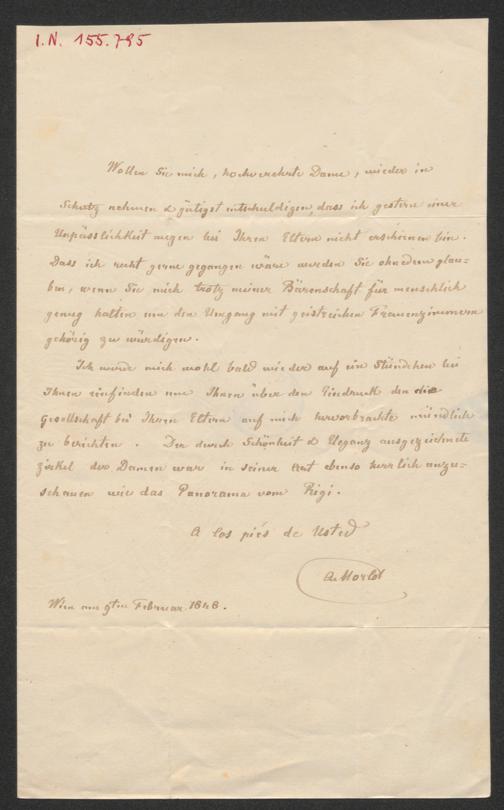 I.N. 155.795
Wollen Sie mich, hochverehrte Dame, wieder in
Schutz nehmen & gütigst entschuldigen, dass ich gestern einer
Unpässlichkeit wegen bei Ihren Eltern nicht erschienen bin.
Dass ich recht gerne gegangen wäre werden Sie ohnedem glau-
ben, wenn Sie mich trotz meiner Bärenschaft für menschlich
genug halten um den Umgang mit geistreichen Frauenzimmern
gehörig zu würdigen.
Ich werde mich wohl bald wieder auf ein Stündchen bei
Ihnen einfinden um Ihnen über den Eindruck den die
Gesellschaft bei Ihren Eltern auf mich hervorbrachte mündlich
zu berichten. Der durch Schönheit & Eleganz ausgezeichnete
Zirkel der Damen war in seiner Art ebenso herrlich anzu-
schauen wie das Panorama vom Rigi.
A los piés de Usted
A. Morlot
Wien am 9ten Februar 1848.